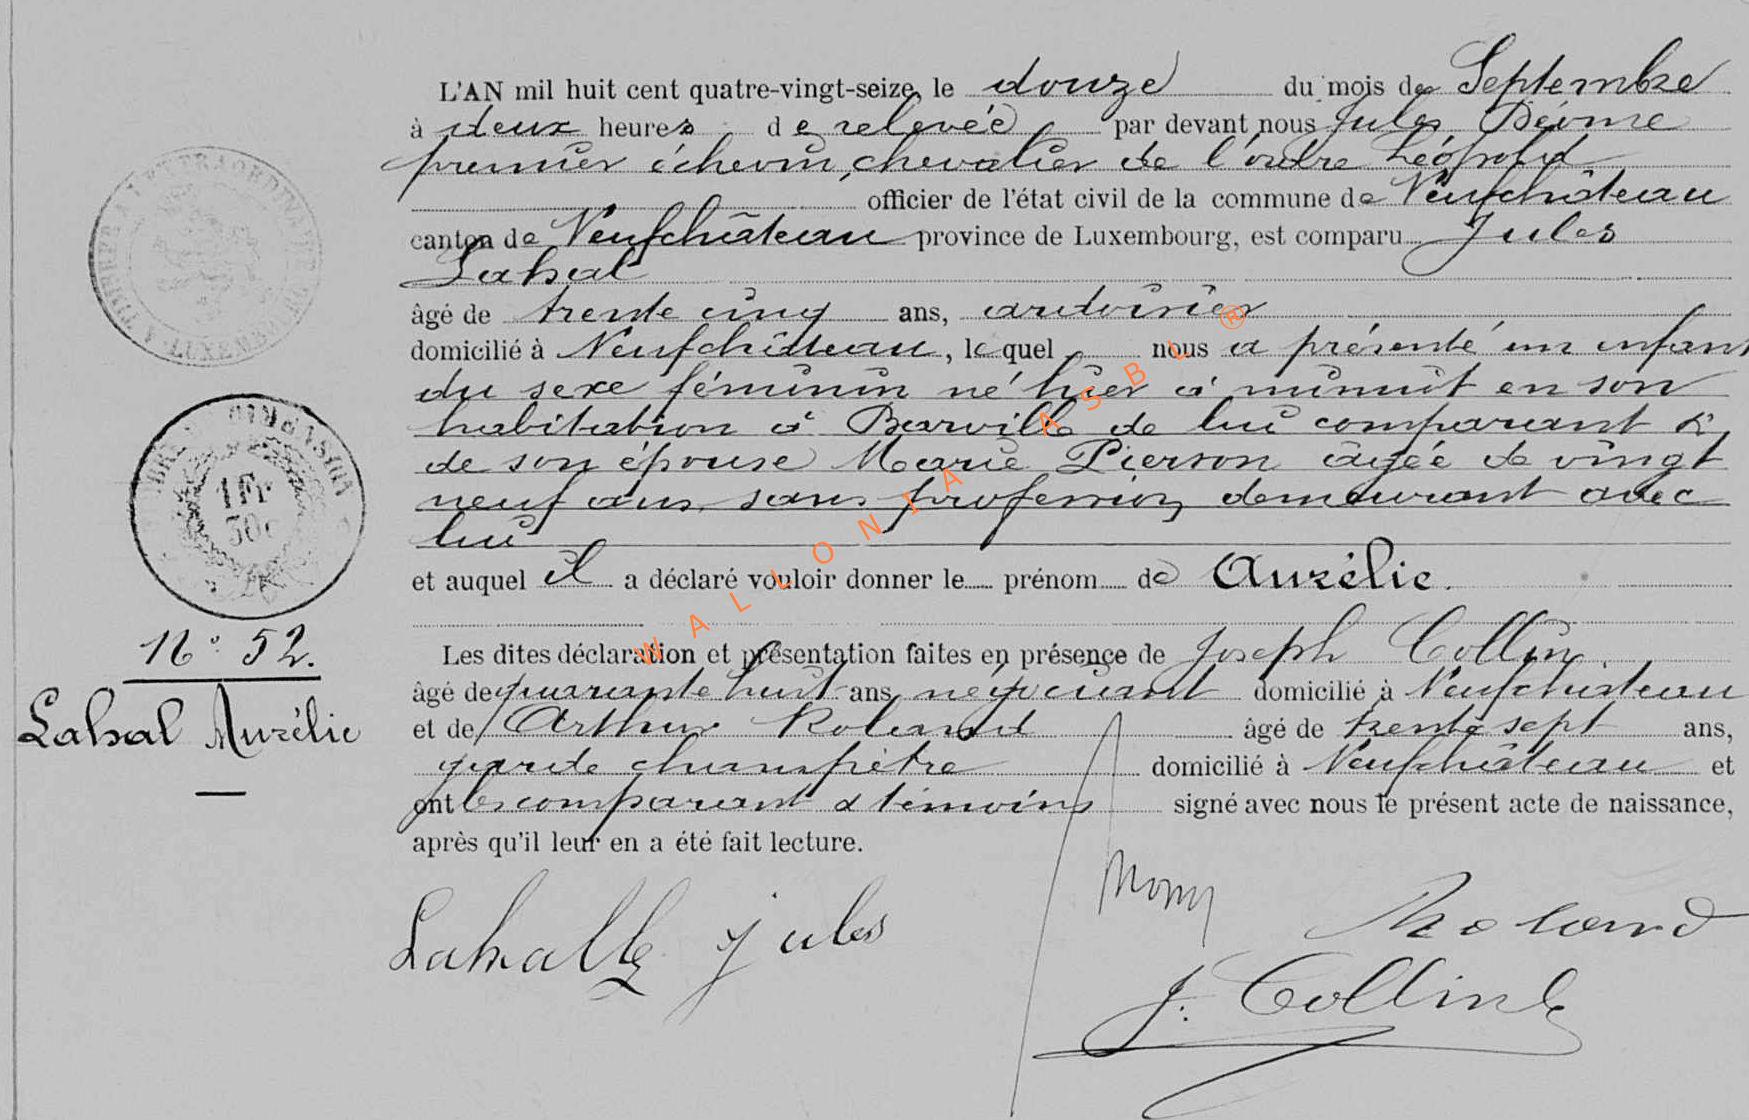 L'AN mil huit cent quatre-vingt-seize, le douze du mois de Septembre
à deux heures de relevée par devant nous Jules
premier échevin, chevalier de l'ordre Léopold
officier de l'état civil de la commune de Neufchâteau
canton de Neufchâteau province de Luxembourg, est comparu Jules
Lahal
âgé de trente cinq ans, ardoisier
domicilié à Neufchâteau, lequel nous a présenté un enfant
du sexe féminin né hier à minuit en son
habitation à Warville de lui comparant &
de son épouse Marie Pierson âgée de vingt
neuf ans, sans profession, demeurant avec
lui
et auquel il a déclaré vouloir donner le prénom de Aurélie.
Les dites déclaration et présentation faites en présence de Joseph Collin.
âgé de quarante huit ans, négociant domicilié à Neufchâteau
et de Arthur Roland âgé de trente sept ans,
garde champêtre domicilié à Neufchâteau et
ont les comparant & témoins signé avec nous le présent acte de naissance,
après qu'il leur en a été fait lecture.
N° 52.
Lahal Aurélie
Lahalle Jules
Roland
J. Collin
1 Fr
50c
WALLONIA ASBL ®